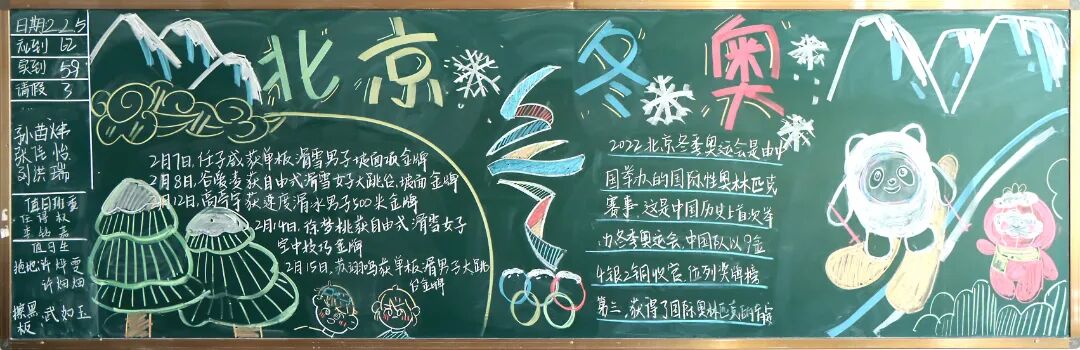 日期2.25
应到 62
实到 59
请假 3
值日班委
值日生
拖地 许烨雯
擦黑板 武如玉
北京冬奥
2月7日,任子威获单板滑雪男子坡面板金牌
2月8日,谷爱凌获自由式滑雪女子大跳台,坡面金牌
2月12日,高亭宇获速度滑冰男子500米金牌
2月14日,徐梦桃获自由式滑雪女子
空中技巧金牌
2月15日,苏翊鸣获单板滑男子大跳
台金牌
2022北京冬季奥运会是由中
国举办的国际性奥林匹克
赛事,这是中国历史上首次举
办冬季奥运会,中国队以9金
4银2铜收官,位列奖牌榜
第三,获得了国际奥林匹克